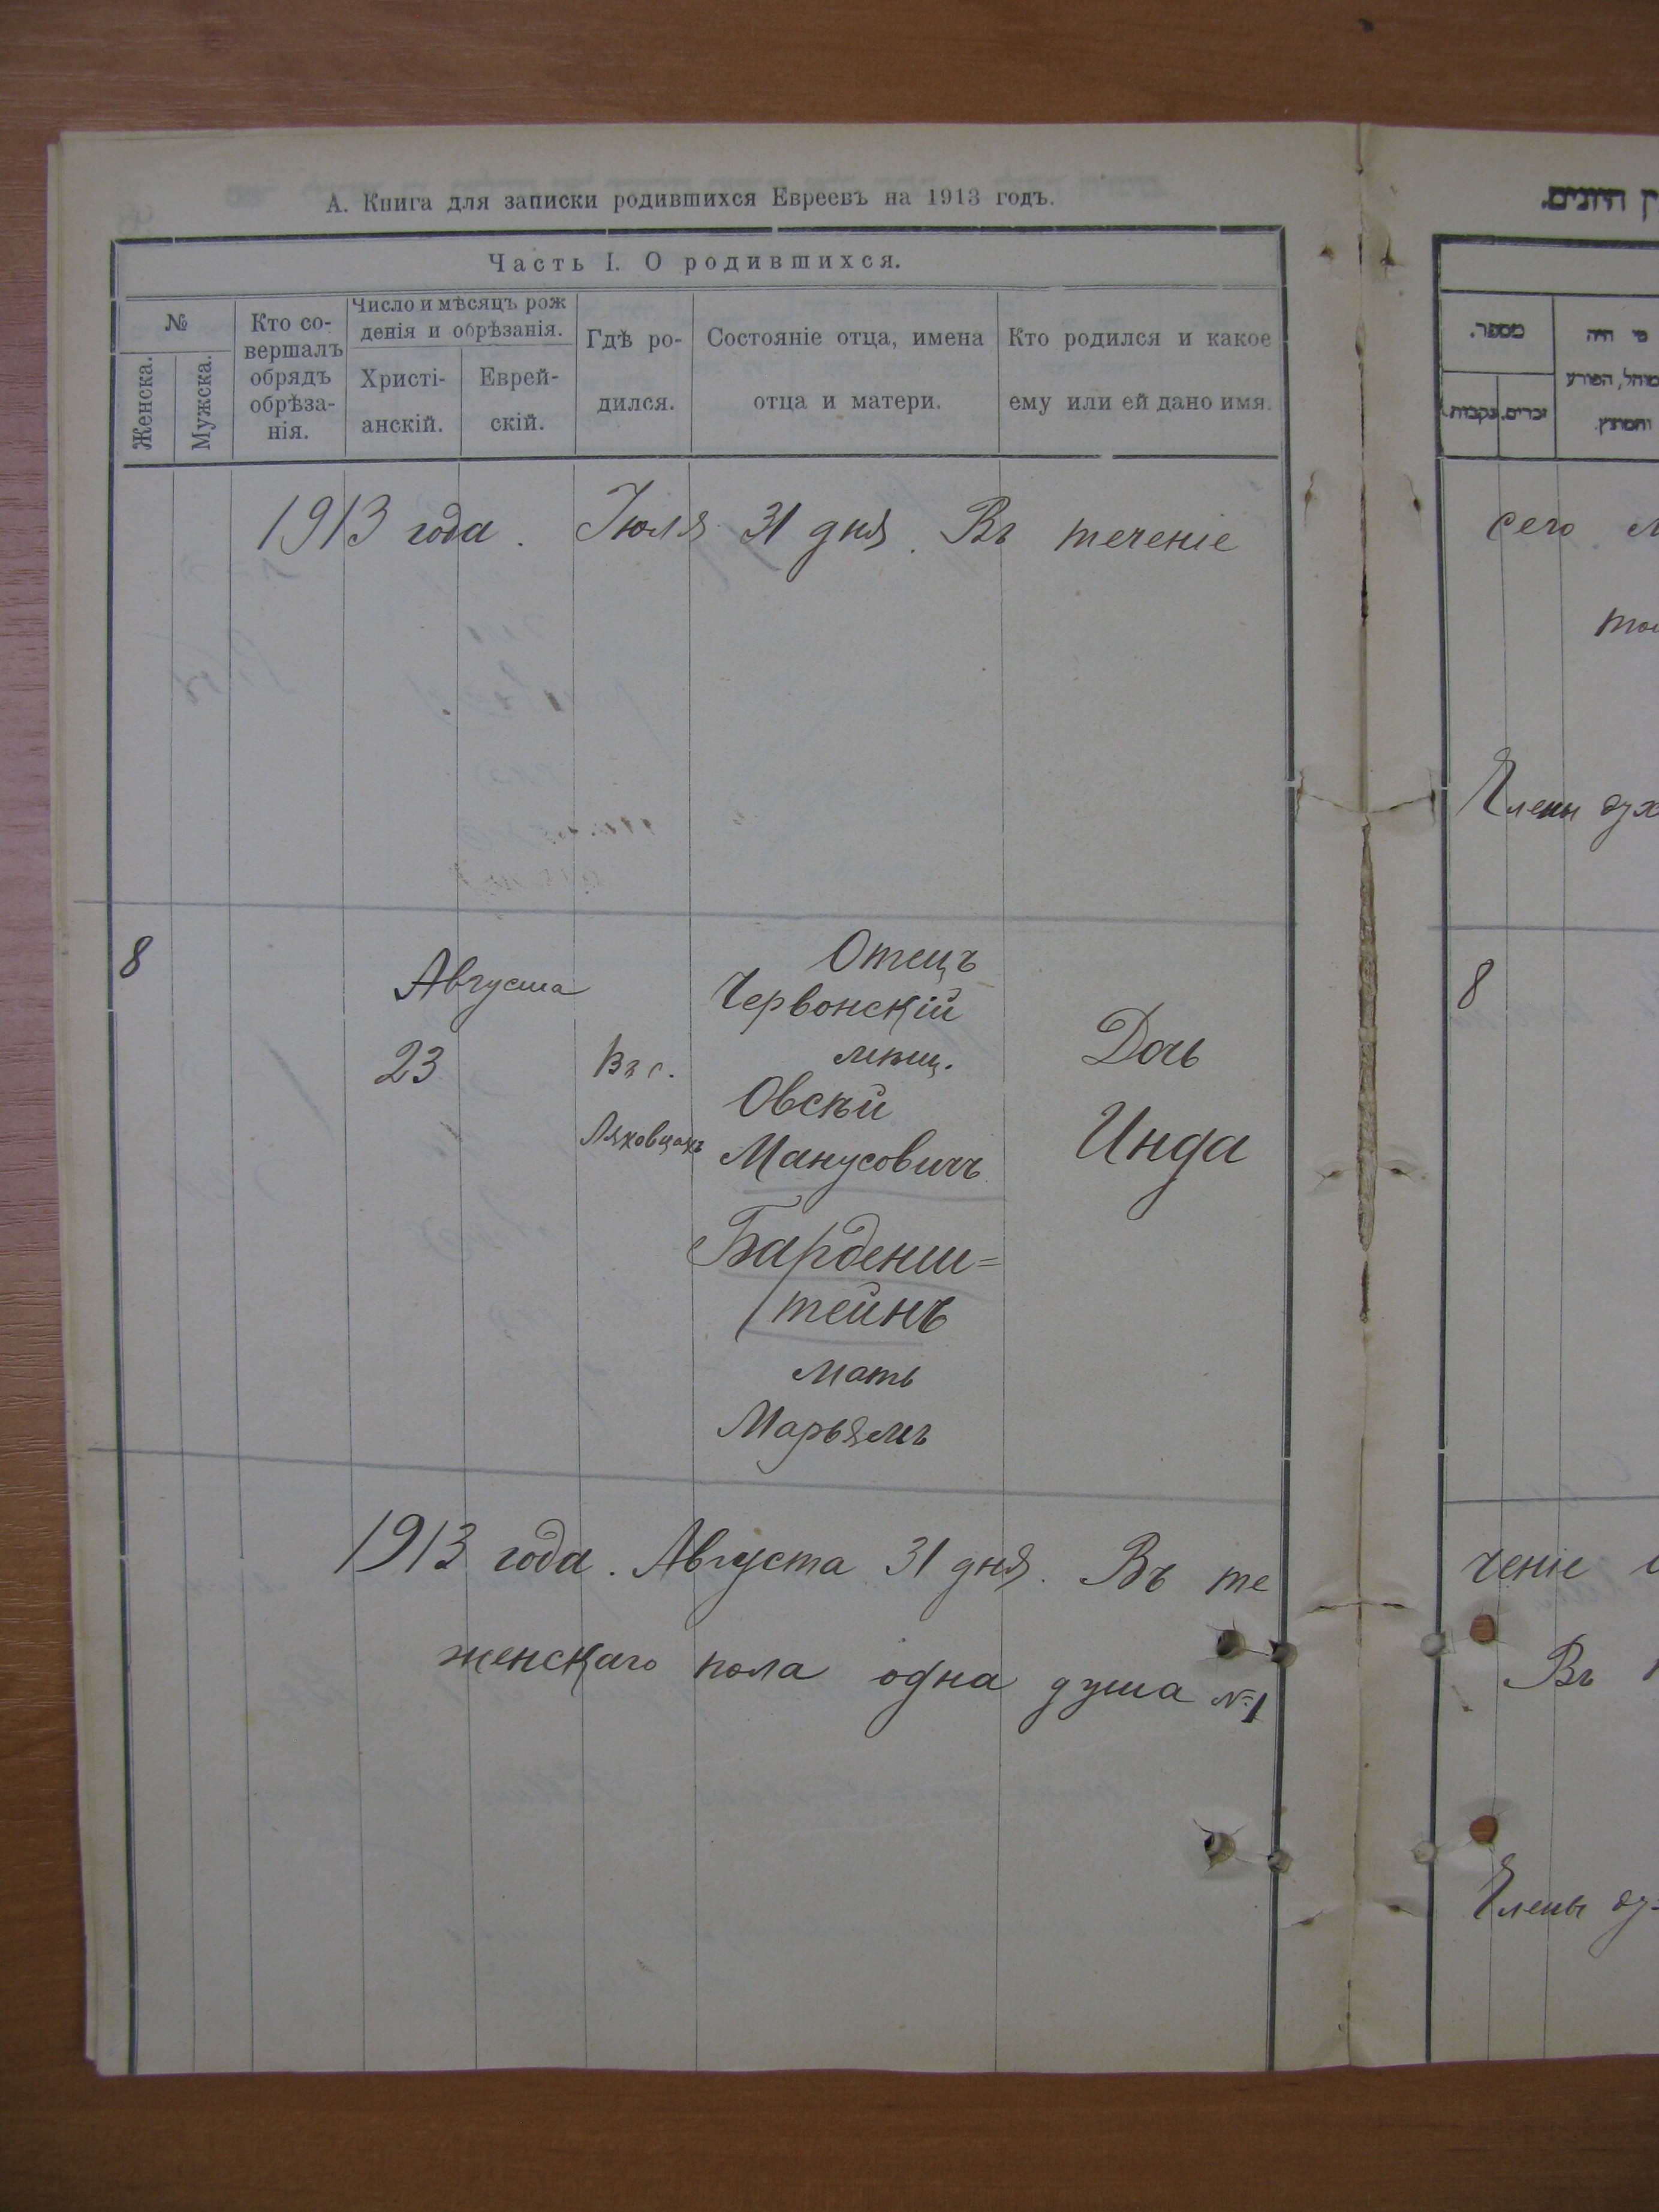 А. Книга для записки родившихся Евреевъ на 1913 годъ.
Часть I. О родившихся.
№
Женска.
Мужска.
Кто со-
вершалъ
обрядъ
обрѣза-
нія.
Число и мѣсяцъ рож
денія и обрѣзанія.
Христі-
анскій.
Еврей-
скій.
Гдѣ ро-
дился.
Состояніе отца, имена
отца и матери.
Кто родился и какое
ему или ей дано имя.
1913 года. Іюля 31 дня. Въ теченіе
8
Августа
23
Въ с.
Ляховцахъ
Отецъ
Червонскій
мѣщ.
Овсѣй
Манусовичъ
Барденш=
тейнъ
мать
Марьямъ
Дочь
Инда
1913 года. Августа 31 дня. Въ те
женскаго пола одна душа №1
ן היונים.
מספר.
זכרים.
נקבות.
מי היה
מוהל, הפורע
והמוצץ.
сего
8
Члены дух
ченіе
Въ
Члены ду